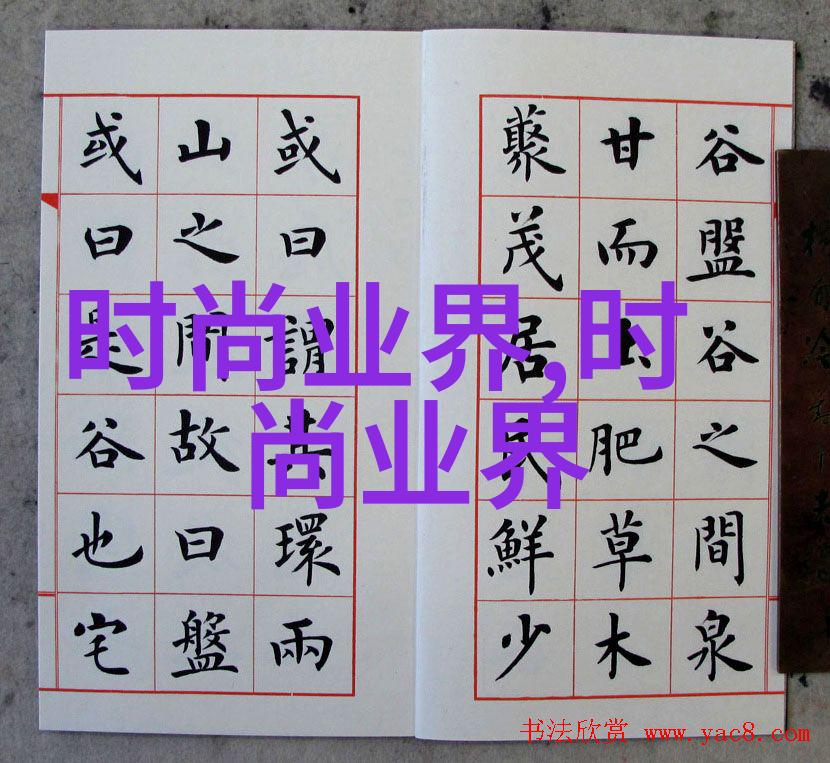 谷盤谷之間泉
甘而土肥草木
藂茂居民鮮少
或曰謂其環兩
山之間故曰盤
或曰是谷也宅
时尚业界,时
尚业界
书法欣赏 www.yac8.com